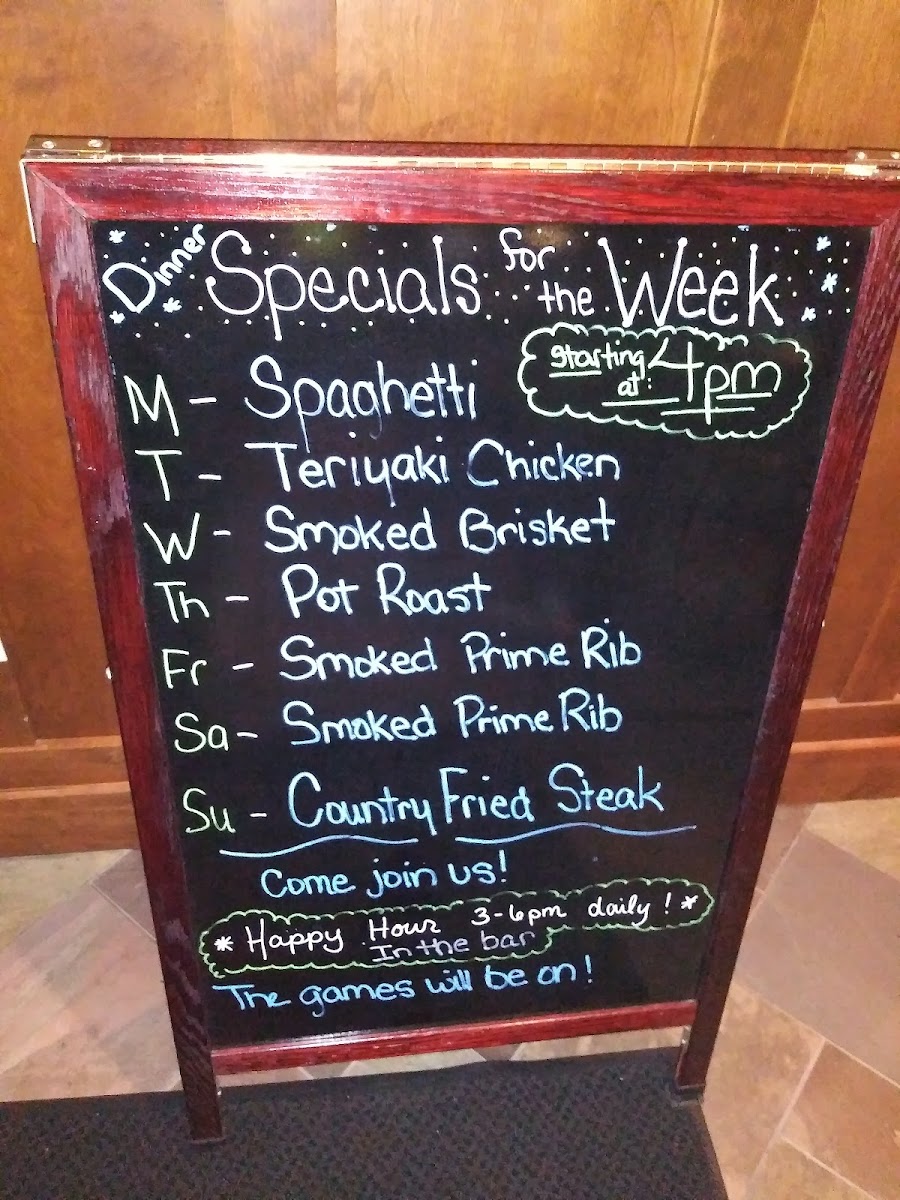 Dinner Specials for the Week
starting at: 4pm
M - Spaghetti
T - Teriyaki Chicken
W - Smoked Brisket
Th - Pot Roast
Fr - Smoked Prime Rib
Sa - Smoked Prime Rib
Su - Country Fried Steak
Come join us!
* Happy Hour 3-6pm daily! *
In the bar
The games will be on!